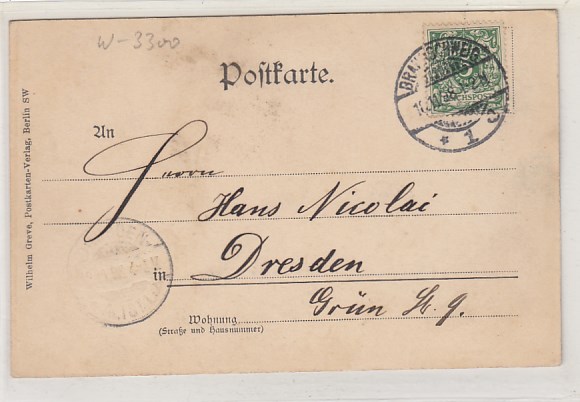 W-3300
Postkarte.
BRAUNSCHWEIG
REICHSPOST
* 1
An
Herrn
Hans Nicolai
in Dresden
Grün St. 9.
Wohnung
(Straße und Hausnummer)
Wilhelm Greve, Postkarten-Verlag, Berlin SW